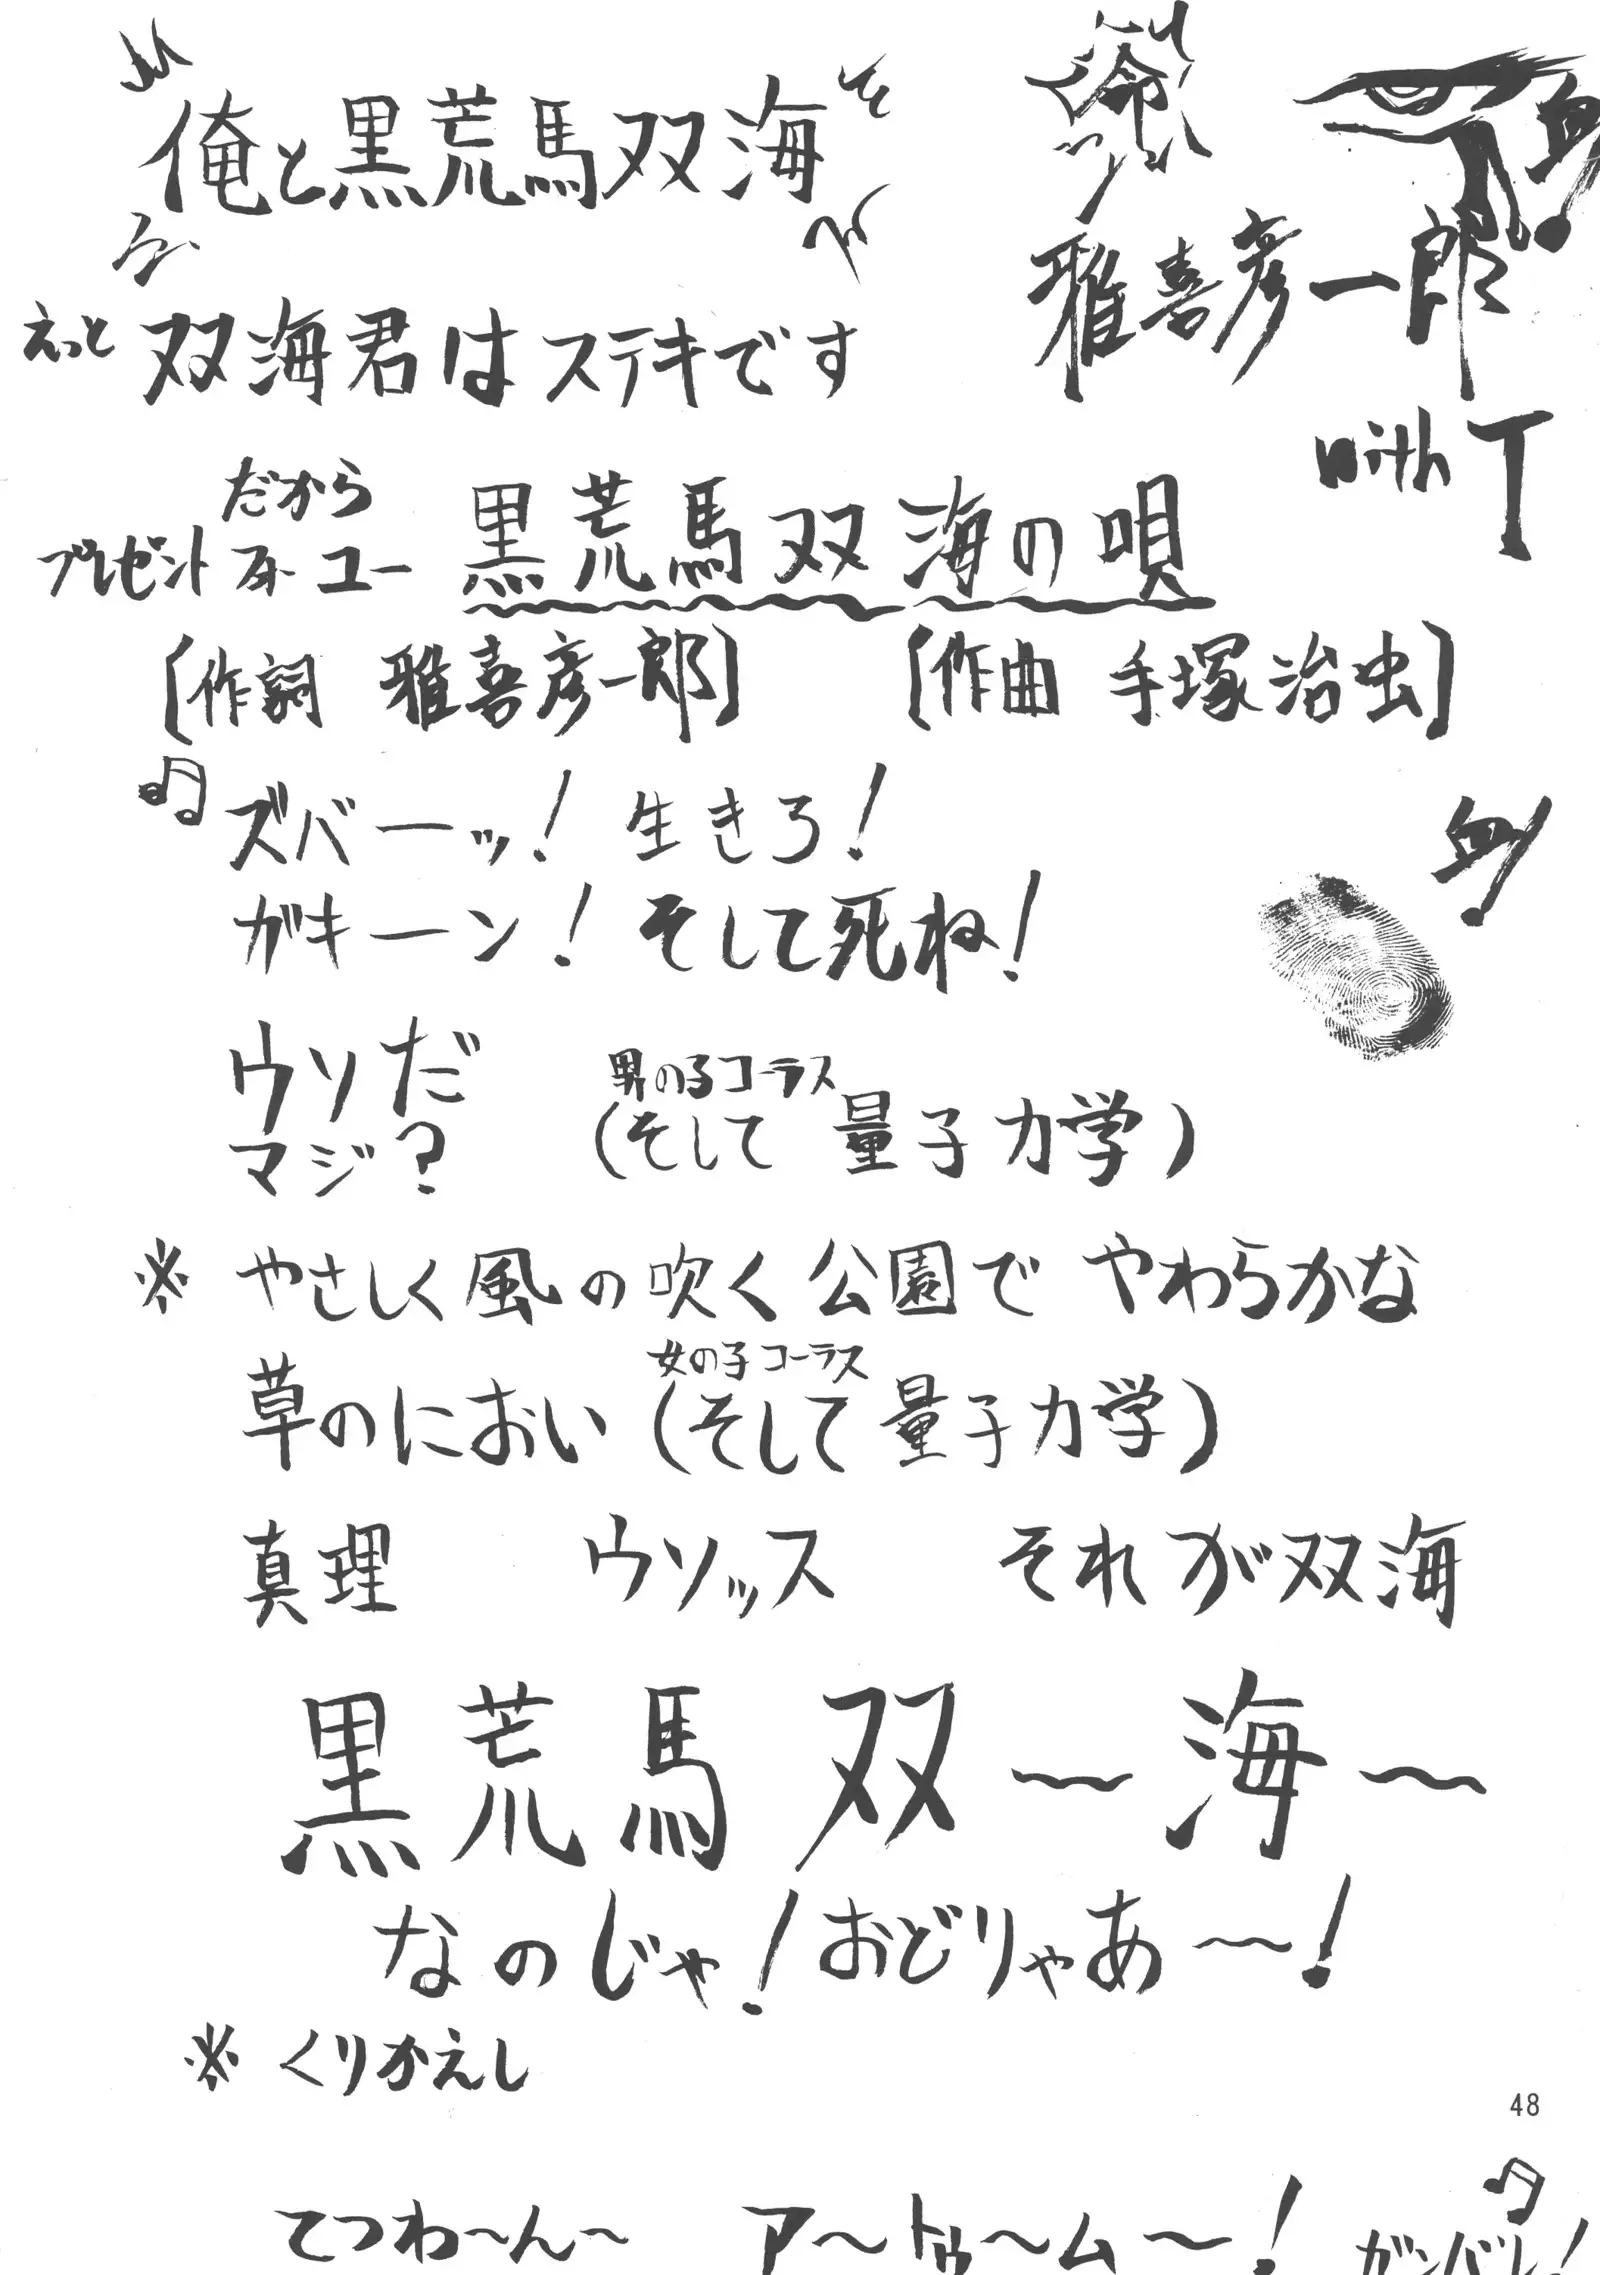 俺と黒荒馬双海
命
雅喜彦一郎
with T
血!
えっと 双海君はステキです
だから
プレゼント フォー ユー 黒荒馬双海の唄
[作詞 雅喜彦一郎] [作曲 手塚治虫]
ズバーッ! 生きろ!
血!
ガキーン! そして死ね!
ウソだ
マジ?
男の子コーラス
(そして 量子力学)
※ やさしく風の吹く公園で やわらかな
女の子コーラス
草のにおい (そして 量子力学)
真理 ウソッス それが双海
黒荒馬双〜海〜
なのじゃ! おどりゃあ〜!
※ くりかえし
48
てつわ〜ん〜 ア〜トゥ〜ム〜! ガンバレ!